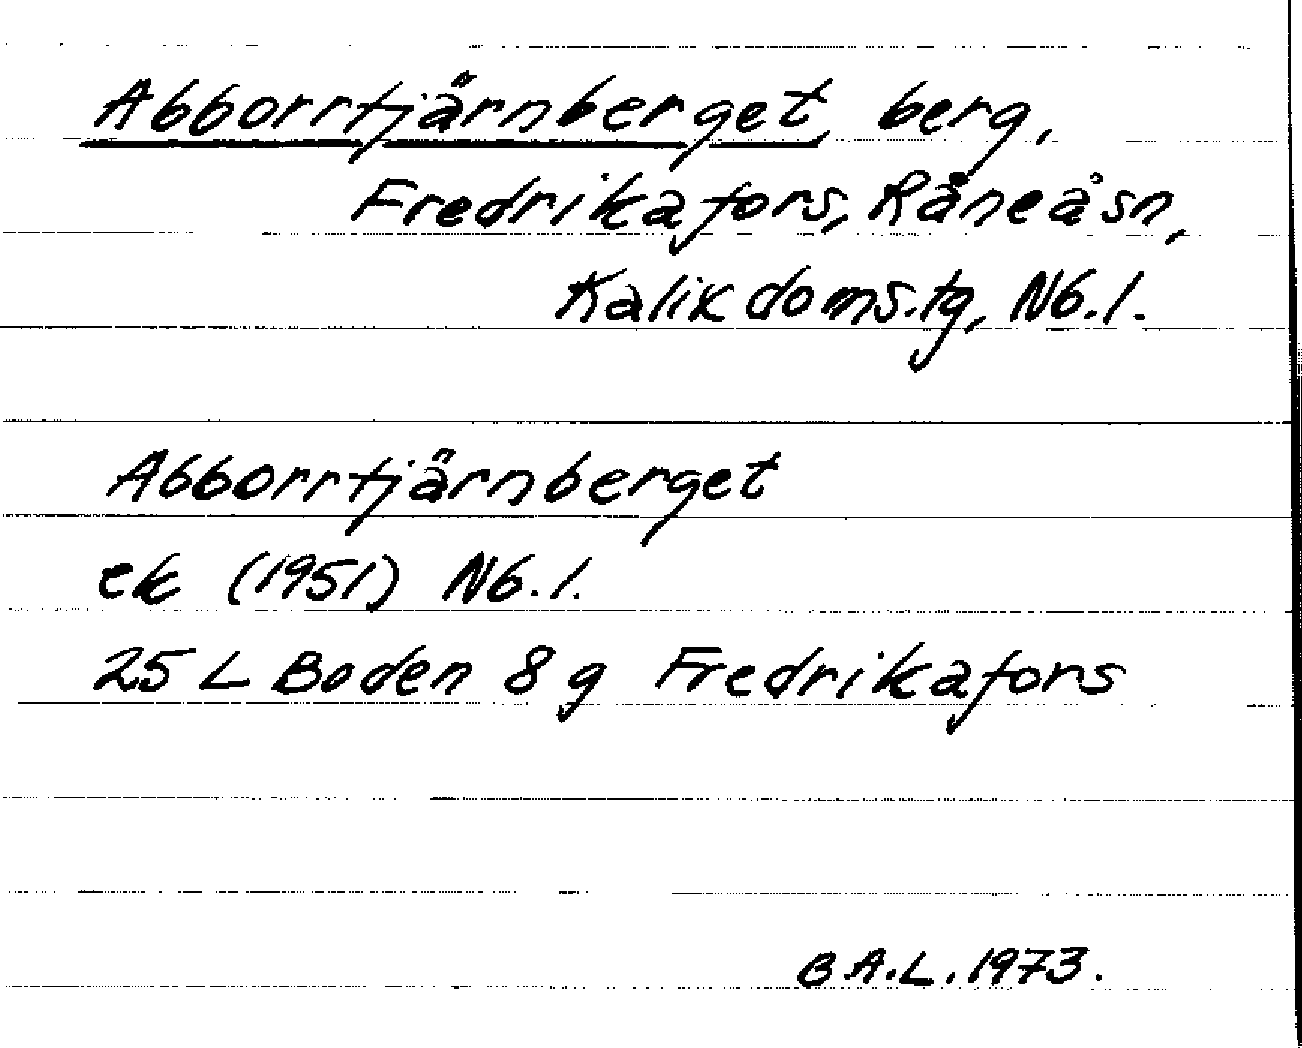 Abborrtjärnberget, berg,
Fredrikafors, Råneå sn,
Kalix doms.tg, Nb.l.
Abborrtjärnberget
ek (1951) Nb.l.
25 L Boden 8 g Fredrikafors
B A.L. 1973.